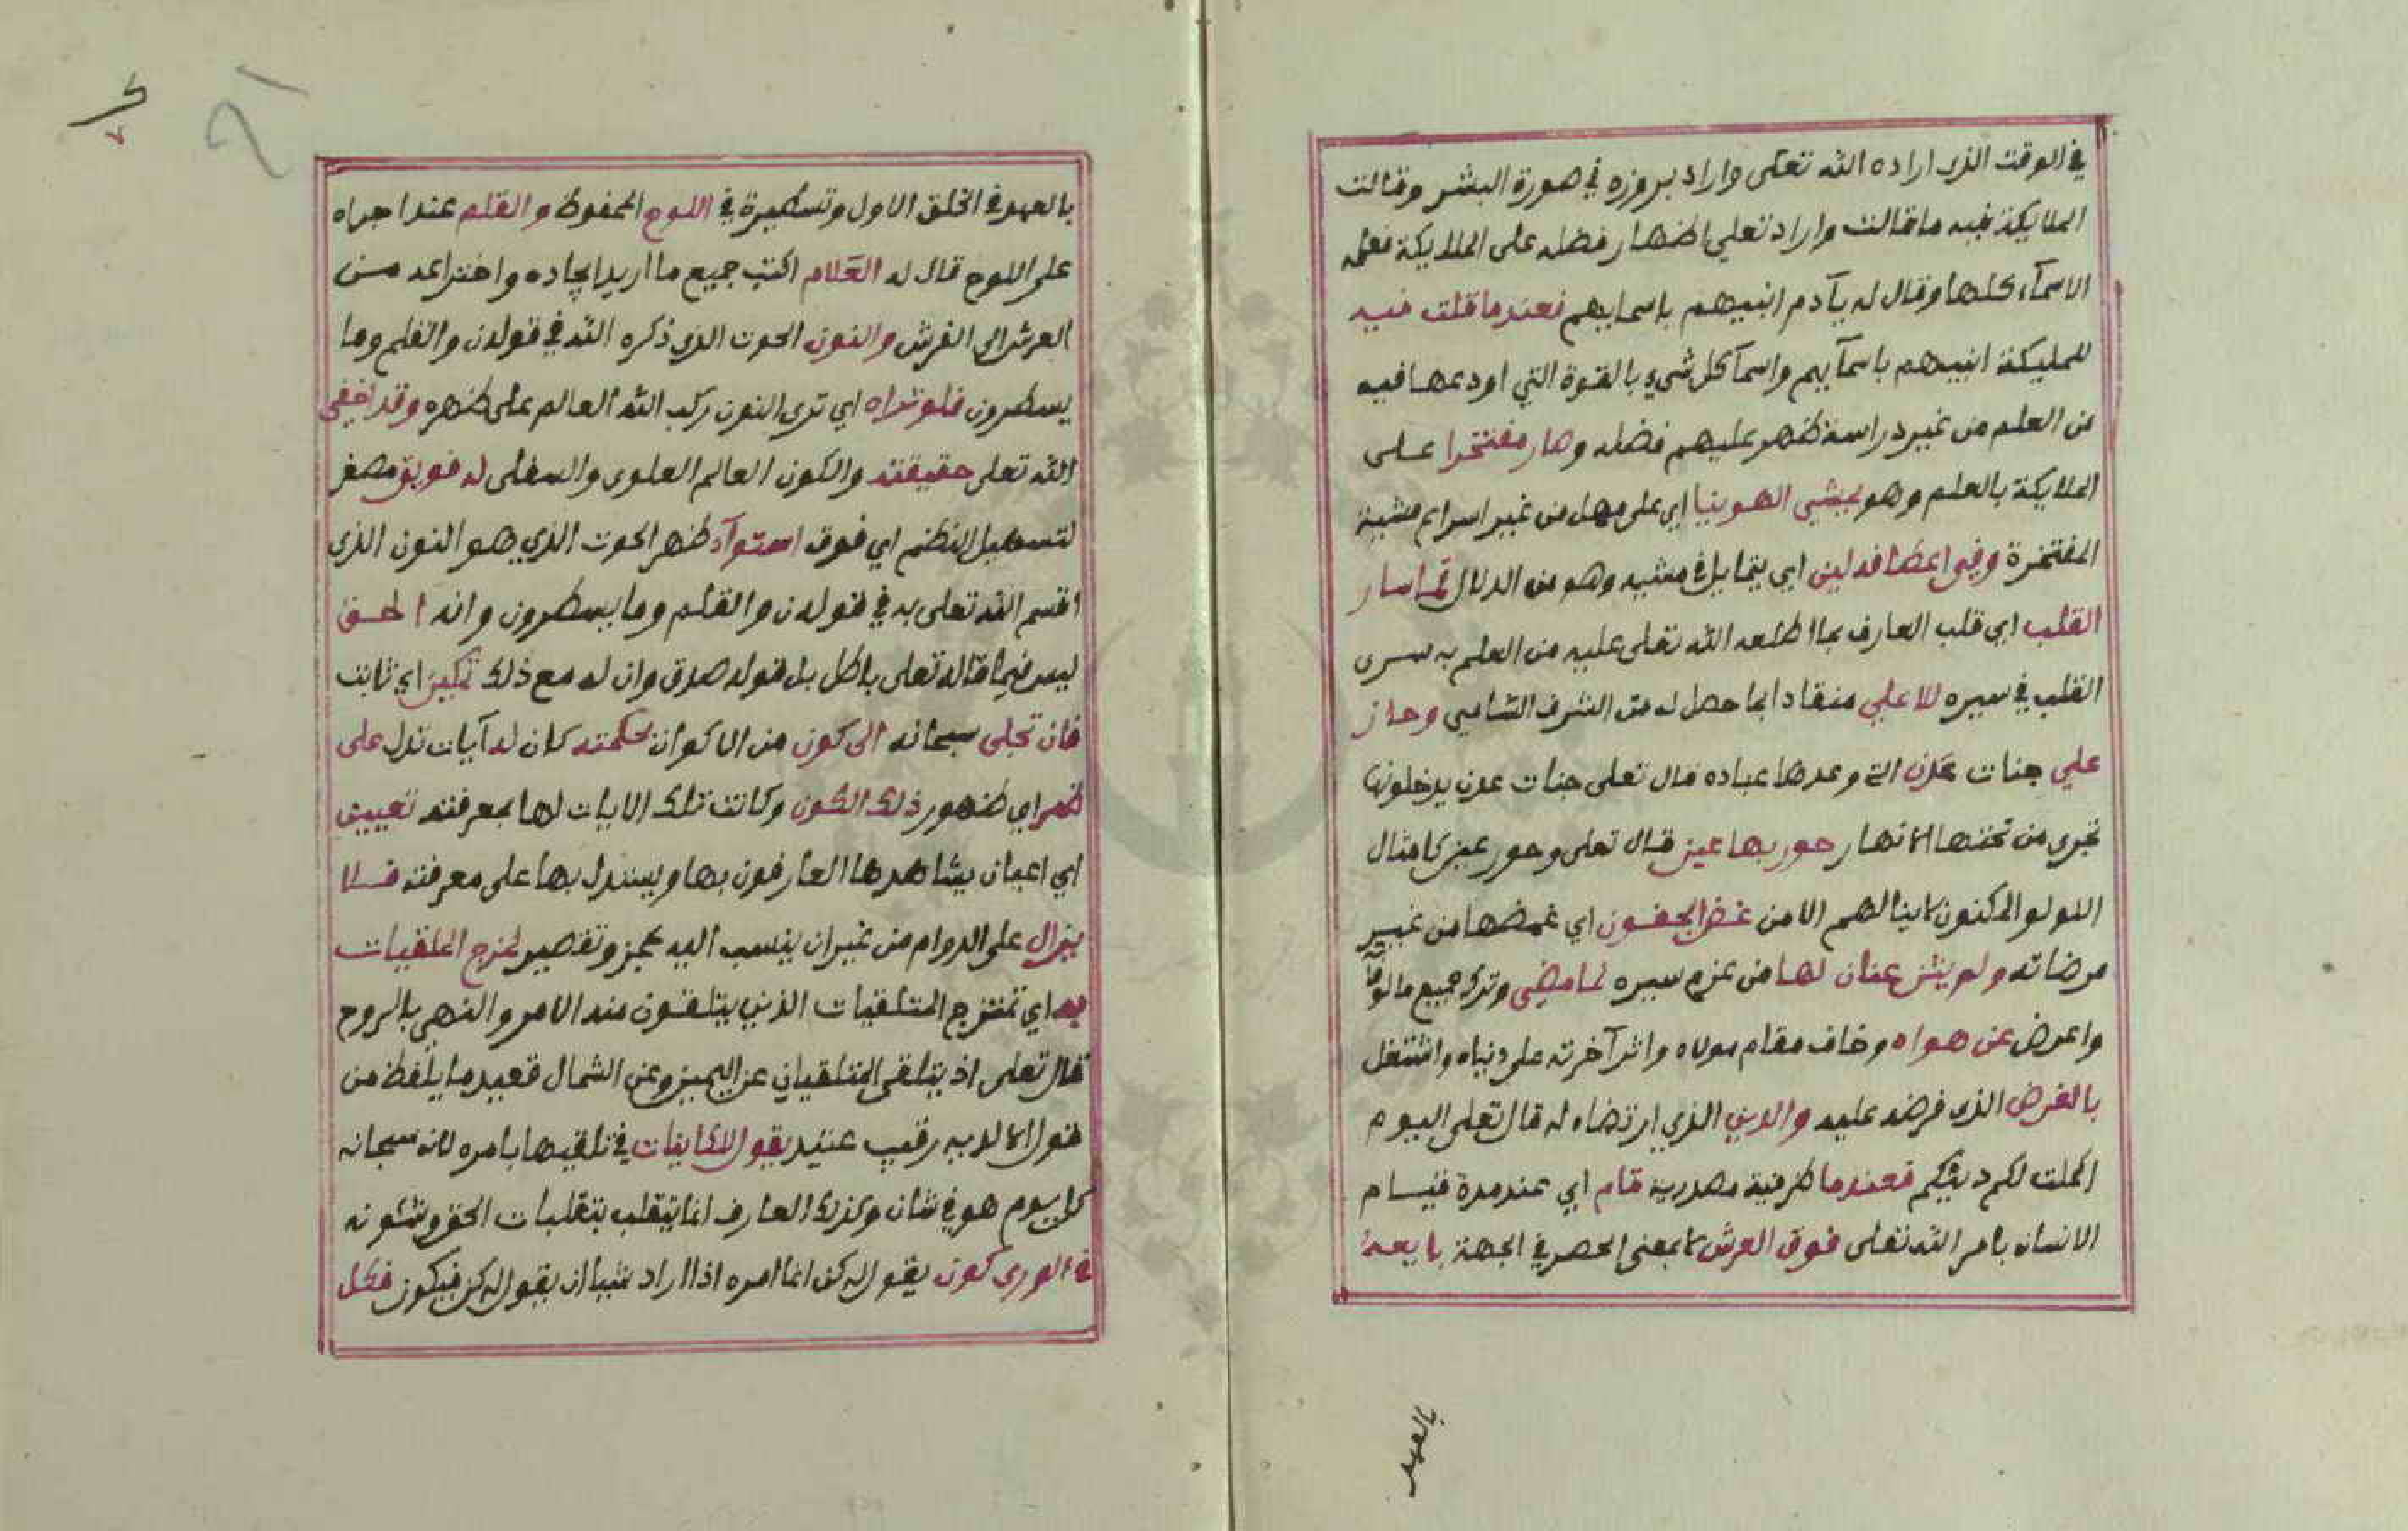 في الوقت الذي اراده الله تعالى واراد بروزه في صورة البشر وقالت
الملايكة فيه ما قالت واراد تعلي اظهار فضله على الملايكة فعلمه
الاسمآء كلها وقال له يآدم انبيهم باسمايهم فعندما قلت فيه
للمليكة انبيهم باسمآيهم واسمآ كل شيء بالقوة التي اودعها فيه
من العلم من غير دراسة ظهر عليهم فضله وصار مفتخرا على
الملايكة بالعلم وهو يمشي الهوينا اي على مهل من غير اسراع مشية
المفتخرة وفي اعطافه لين اي يتمايل في مشيه وهو من الدلال لما سار
القلب اي قلب العارف بما اطلعه الله تعلى عليه من العلم به سرى
القلب في سيره للاعلي منقادا بما حصل له من الشرف السامي وحاز
علي جنات عدن التي وعدها عباده قال تعلى جنات عدن يدخلونها
تجري من تحتها الانهار حور بها عين قال تعلى وحور عين كامثال
اللولو المكنون لا ينالهم الا من غض الجفون اي غمضها من غير
مرضاته ولم يثن عنان لها من عزم سيره لما مضى وترك جميع مالوفاته
واعرض عن هواه وخاف مقام مولاه واثر آخرته على دنياه واشتغل
بالفرض الذي فرضه عليه والدين الذي ارتضاه له قال تعلى اليوم
اكملت لكم دينكم فعندما ظرفية مصدرية قام اي عند مدة قيام
الانسان بامر الله تعلى فوق العرش لا بمعنى الحصر في الجهة بايعه
بالعهد
بالعهد في الخلق الاول وتسطيره في اللوح المحفوظ والقلم عند اجراه
على اللوح قال له العلام اكتب جميع ما اريد ايجاده واختراعه من
العرش الى الفرش والنون الحوت الذي ذكره الله في قوله ن والقلم وما
يسطرون فلو تراه اي ترى النون ركب الله العالم على ظهره وقد اخفى
الله تعلى حقيقته والكون العالم العلوي والسفلي له فويق مصغر
لتسهيل النظم اي فوق استوآء ظهر الحوت الذي هو النون الذي
اقسم الله تعلى به في قوله ن والقلم وما يسطرون وانه الحق
ليس فيما قاله تعلى باطل بل قوله صدق وان له مع ذلك تمكين اي ثابت
فان تجلى سبحانه الى كون من الاكوان بحكمته كان له آيات تدل على
ظهر اي ظهور ذلك الكون وكانت تلك الايات لها بمعرفته تعيين
اي اعيان يشاهدها العارفون بها ويستدل بها على معرفته فلا
يزال على الدوام من غير ان ينسب اليه عجز وتقصير لمزج الملقيات
به اي تمتزج المتلقيات الذين يتلقون منه الامر والنهي بالروح
قال تعلى اذ يتلقى المتلقيان عن اليمين وعن الشمال قعيد ما يلفظ من
قول الا لديه رقيب عتيد يقول للكاينات في تلقيها بامره لانه سبحانه
كل يوم هو في شان وكذلك العارف انما يتقلب بتقلبات الحق وشئونه
في الورى كون يقول له كن انما امره اذا اراد شيا ان يقول له كن فيكون فكل